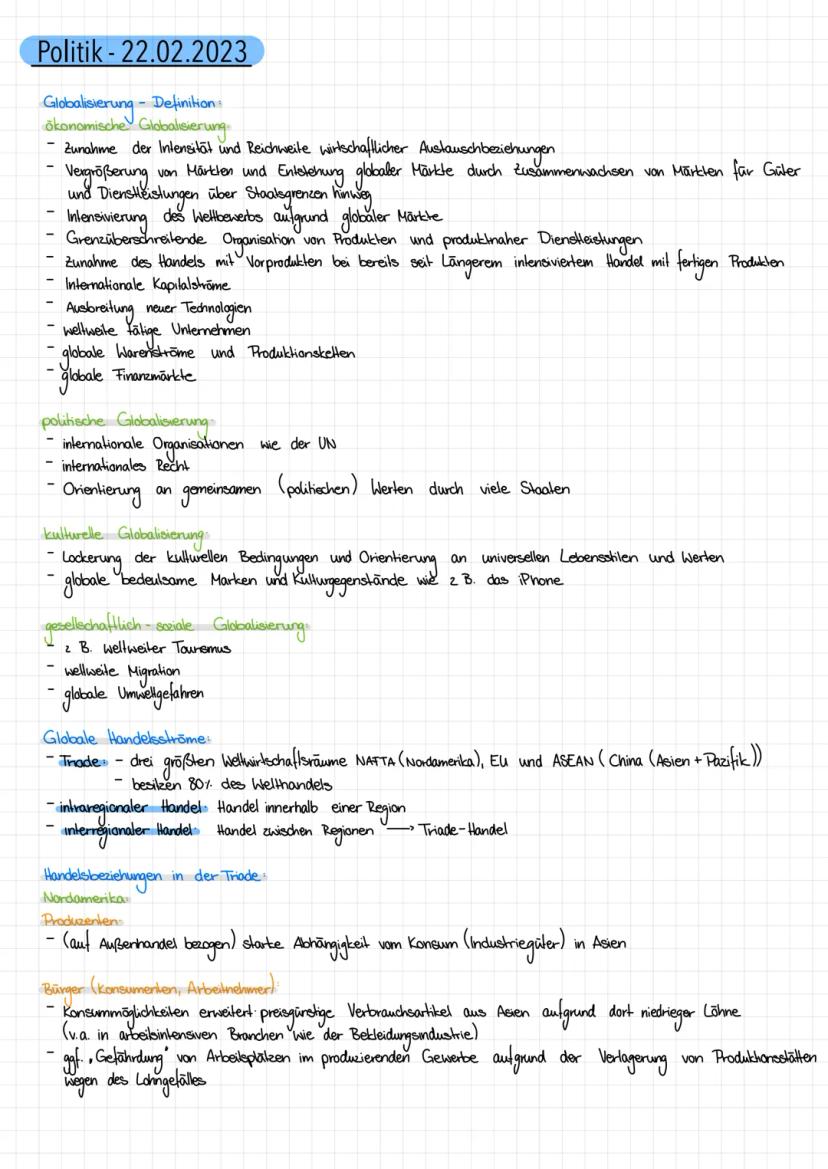 Politik - 22.02.2023
Globalisierung - Definition:
ökonomische Globalisierung:
- Zunahme der Intensität und Reichweite wirtschaftlicher Austauschbeziehungen
- Vergrößerung von Märkten und Entstehung globaler Märkte durch Zusammenwachsen von Märkten für Güter
und Dienstleistungen über Staatsgrenzen hinweg
- Intensivierung des Wettbewerbs aufgrund globaler Märkte
- Grenzüberschreitende Organisation von Produkten und produktnaher Dienstleistungen
- Zunahme des Handels mit Vorprodukten bei bereits seit Längerem intensiviertem Handel mit fertigen Produkten
- Internationale Kapitalströme
- Ausbreitung neuer Technologien
- weltweite tätige Unternehmen
- globale Warenströme und Produktionsketten
- globale Finanzmärkte
politische Globalisierung:
- internationale Organisationen wie der UN
- internationales Recht
- Orientierung an gemeinsamen (politischen) Werten durch viele Staaten
kulturelle Globalisierung:
- Lockerung der kulturellen Bedingungen und Orientierung an universellen Lebensstilen und Werten
- globale bedeutsame Marken und Kulturgegenstände wie z B. das iPhone
gesellschaftlich - soziale Globalisierung:
- z B. weltweiter Tourismus
- weltweite Migration
- globale Umweltgefahren
Globale Handelsströme:
- Triade: - drei größten Weltwirtschaftsräume NAFTA (Nordamerika), EU und ASEAN ( China (Asien + Pazifik))
- besitzen 80% des Welthandels
- intraregionaler Handel: Handel innerhalb einer Region
- interregionaler Handel: Handel zwischen Regionen → Triade-Handel
Handelsbeziehungen in der Triade:
Nordamerika:
Produzenten:
- (auf Außenhandel bezogen) starke Abhängigkeit vom Konsum (Industriegüter) in Asien
Bürger (Konsumenten, Arbeitnehmer):
- Konsummöglichkeiten erweitert: preisgünstige Verbrauchsartikel aus Asien aufgrund dort niedrieger Löhne
(v.a. in arbeitsintensiven Branchen wie der Bekleidungsindustrie)
- ggf. „Gefährdung" von Arbeitsplätzen im produzierenden Gewerbe aufgrund der Verlagerung von Produktionsstätten
wegen des Lohngefälles